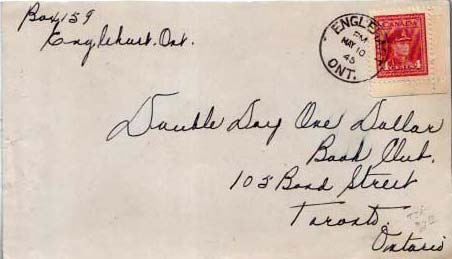 Box 159
Englehart. Ont.
ENGLEHART
PM
MAY 10
45
ONT.
CANADA
4 4
Double Day One Dollar
Book Club.
105 Bond Street
Toronto.
Ontario